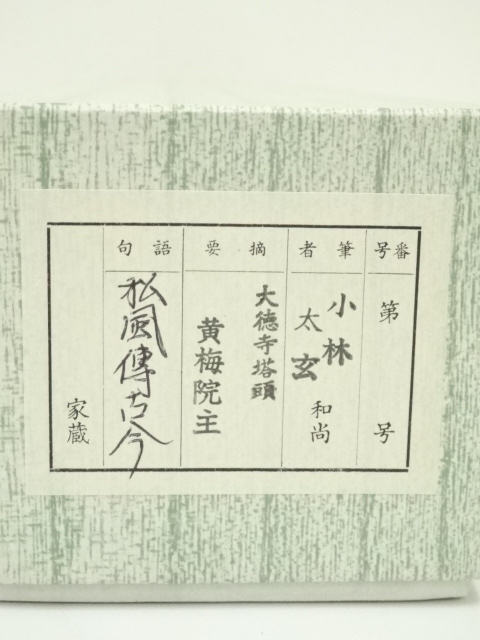 番号
第 号
筆者
小林
太玄
和尚
摘要
大徳寺塔頭
黄梅院主
語句
松風傳古今
家蔵